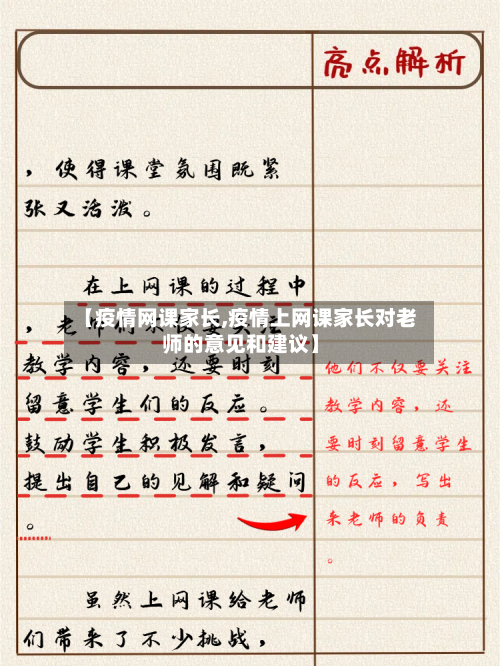 亮点解析
，使得课堂氛围既紧
张又活泼。
在上网课的过程中
【疫情网课家长,疫情上网课家长对老
师的意见和建议】
，老师们不仅要关注
教学内容，还要时刻
留意学生们的反应。
鼓励学生积极发言，
提出自己的见解和疑问
。
虽然上网课给老师
们带来了不少挑战，
他们不仅要关注
教学内容，还
要时刻留意学生
的反应，写出
来老师的负责
。